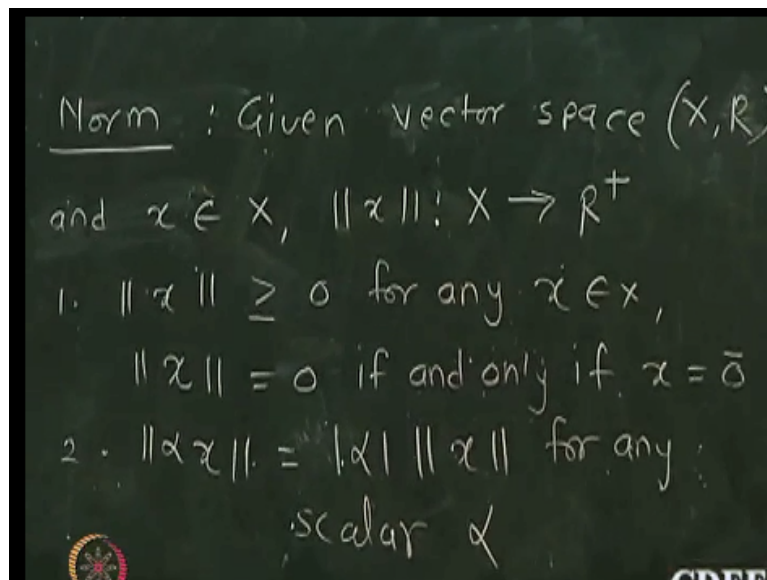 Norm : Given vector space (X, R)
and x ∈ X, ||x|| : X → R⁺
1. ||x|| ≥ 0 for any x ∈ X,
||x|| = 0 if and only if x = 0̄
2. ||αx|| = |α| ||x|| for any
scalar α